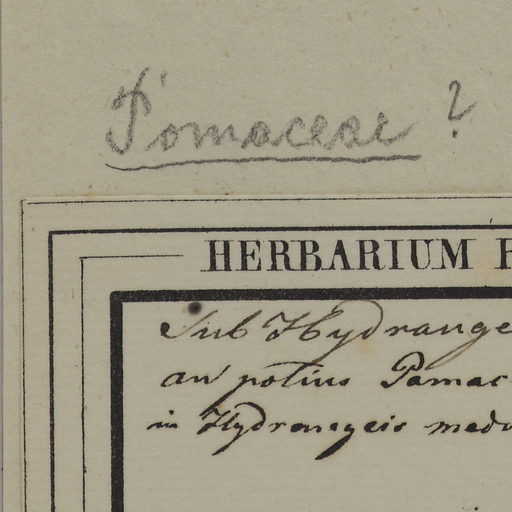 Pomaceae ?
HERBARIUM
Sub Hydrange
an potius Pomac
in Hydrangeis medu